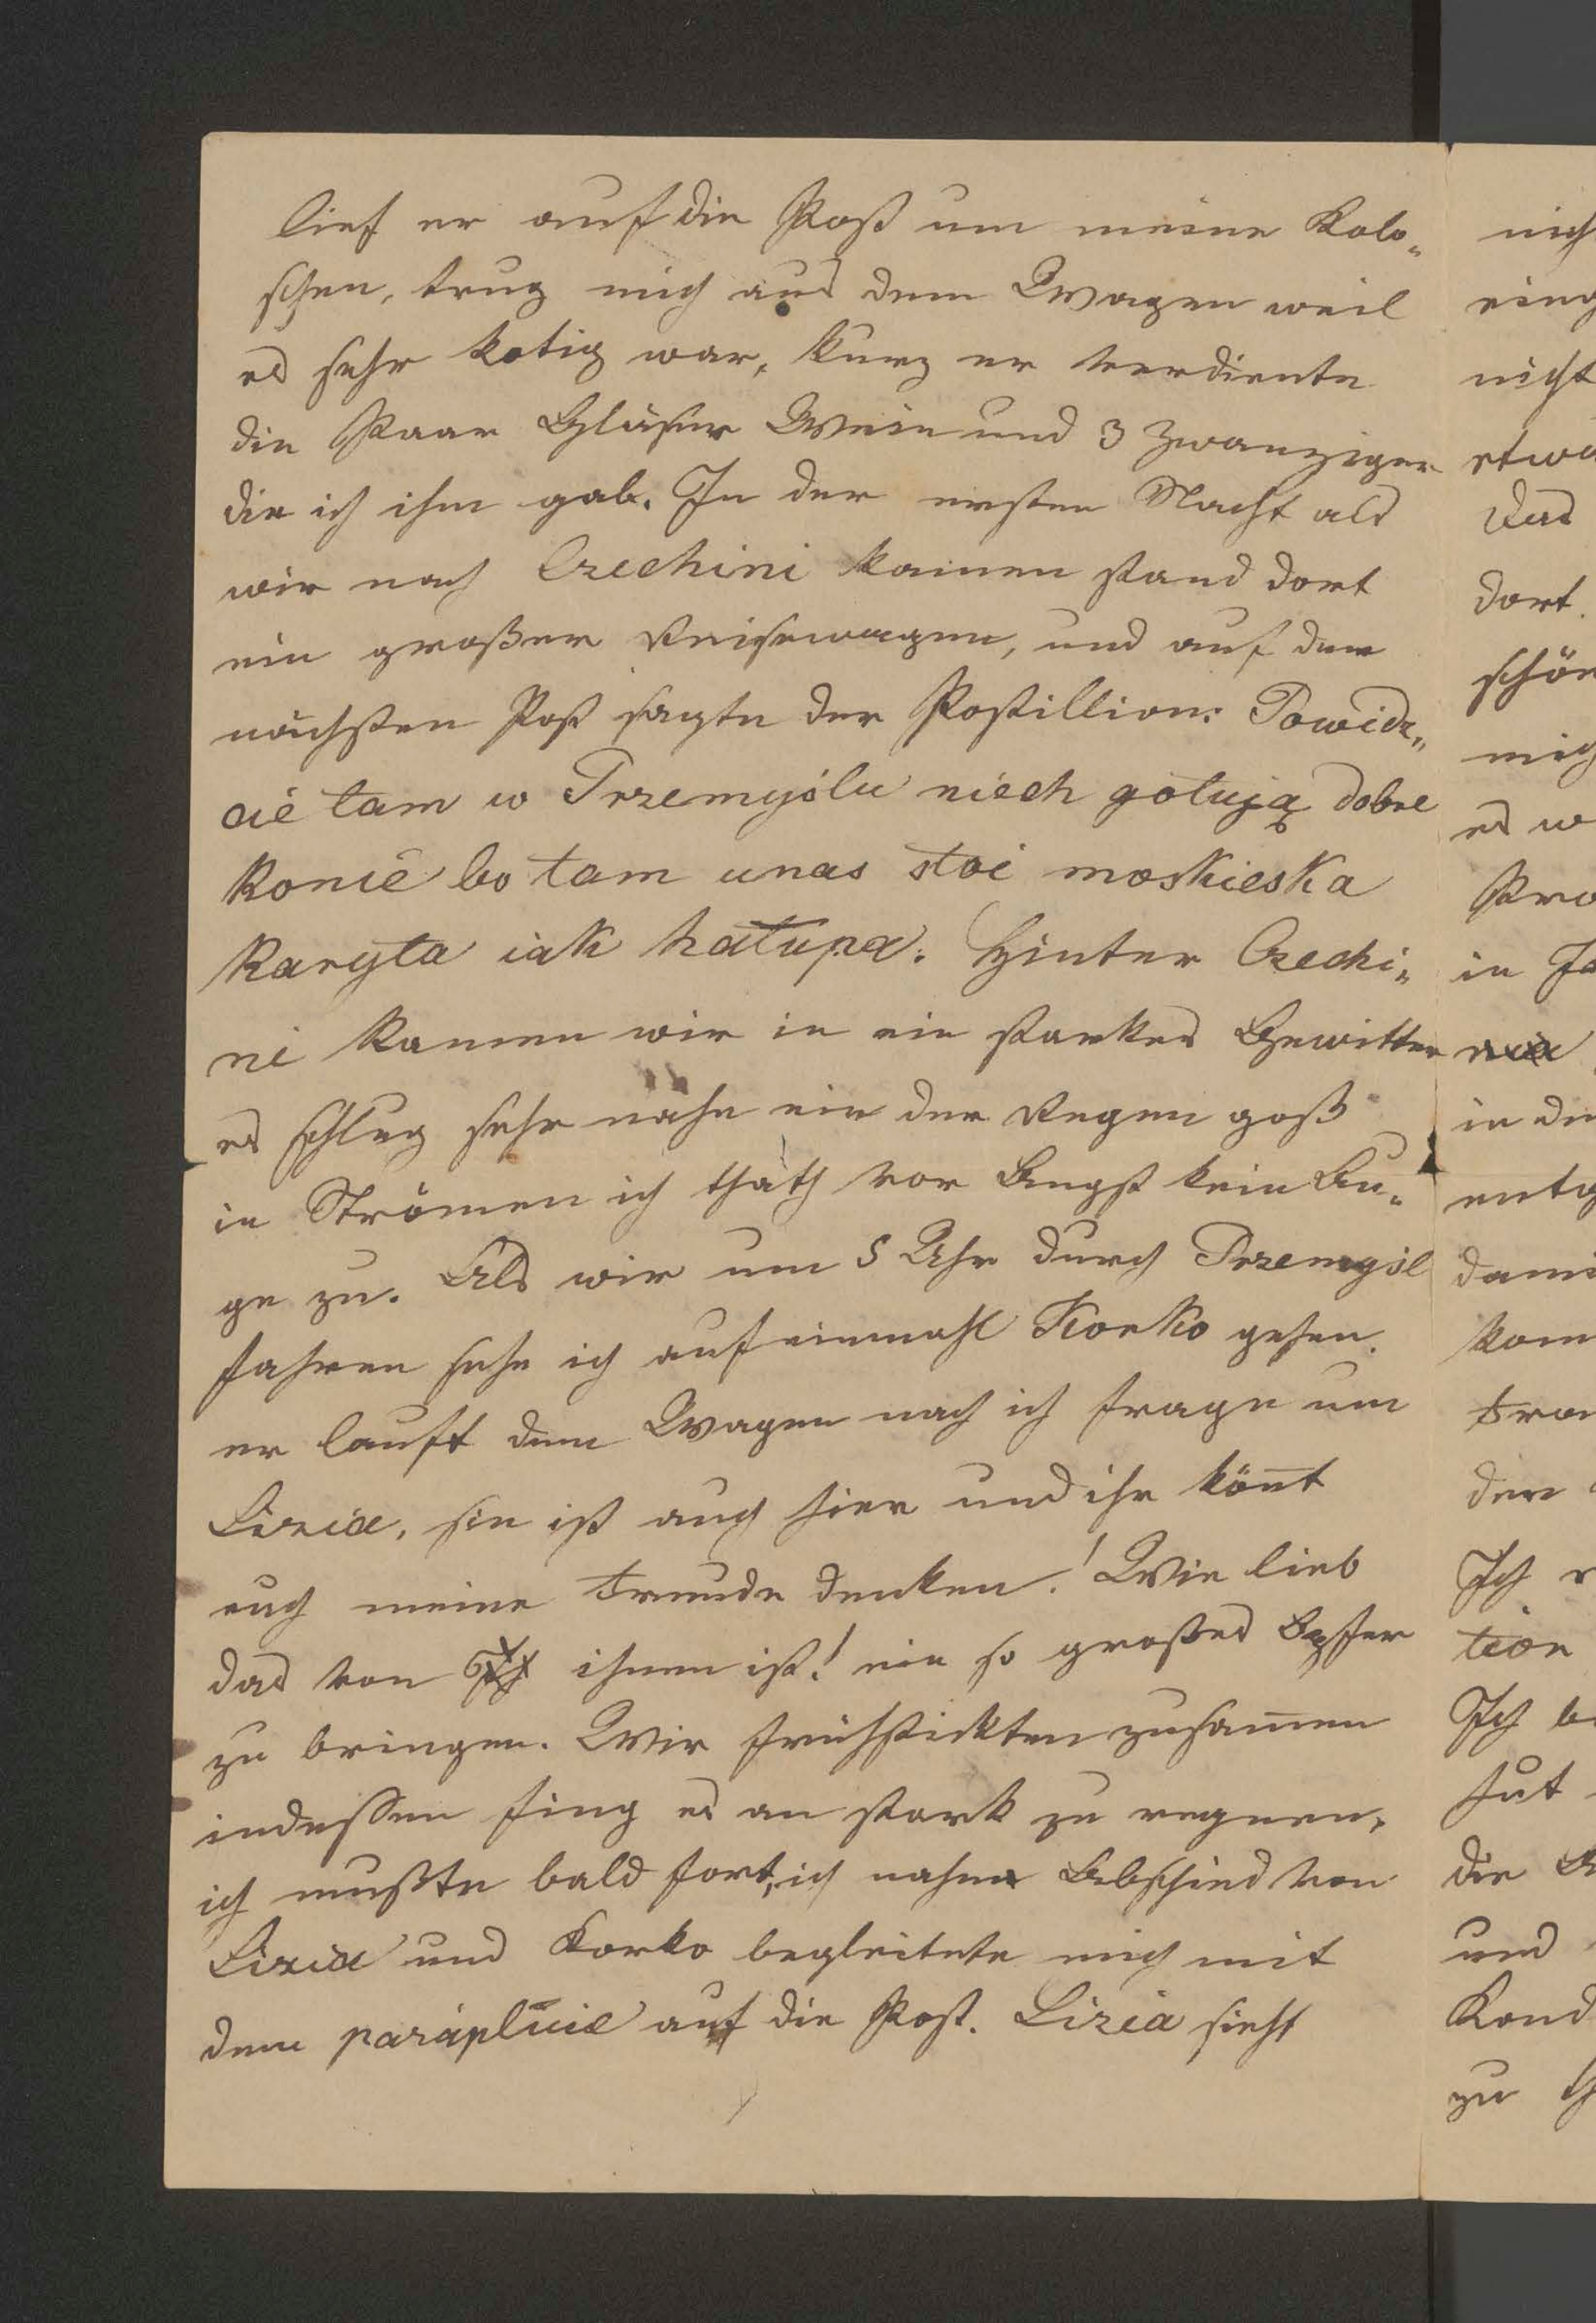 lief er auf die Post um meine Kalo-
schen, trug mich aus dem Wagen weil
es sehr kotig war, kurz er verdiente
die Paar Gläser Wein und 3 Zwanziger
die ich ihm gab. In der ersten Nacht als
wir nach Czechini kamen stand dort
ein großer Reisewagen, und auf der
nächsten Post sagte der Postillion: Powidz-
cie tam w Przemyślu niech gotują dobre
konie bo tam unas stoi moskieska
karyta iak hałupa. Hinter Czechi-
ni kamen wir in ein starkes Gewitter
es schlug sehr nahe ein der Regen goß
in Strömen ich thath vor Angst kein Au-
ge zu. Als wir um 5 Uhr durch Przemyśl
fahren sehe ich auf einmahl Korko gehen.
er lauft dem Wagen nach ich frage um
Lizia, sie ist auch hier und ihr kön̄t
euch meine Freude denken! Wie lieb
das von ihnen ist! ein so großes Opfer
zu bringen. Wir frühstickten zusam̄en
indessen fing es an stark zu regnen,
ich mußte bald fort, ich nahm Abschied von
Lizia und Korko begleitete mich mit
dem parapluie auf die Post. Lizia sieht
nich
eing
nicht
etwa
Das
dort.
schön
mich
es w
Pro
in Ja
in die
entg
dami
kom
der
Ich
tion
Ich be
hut
die
und
Kond
zu